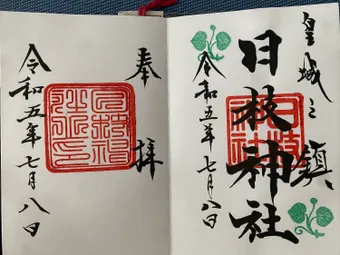 皇城之鎮
日枝神社
令和五年七月八日
奉拝
令和五年七月八日